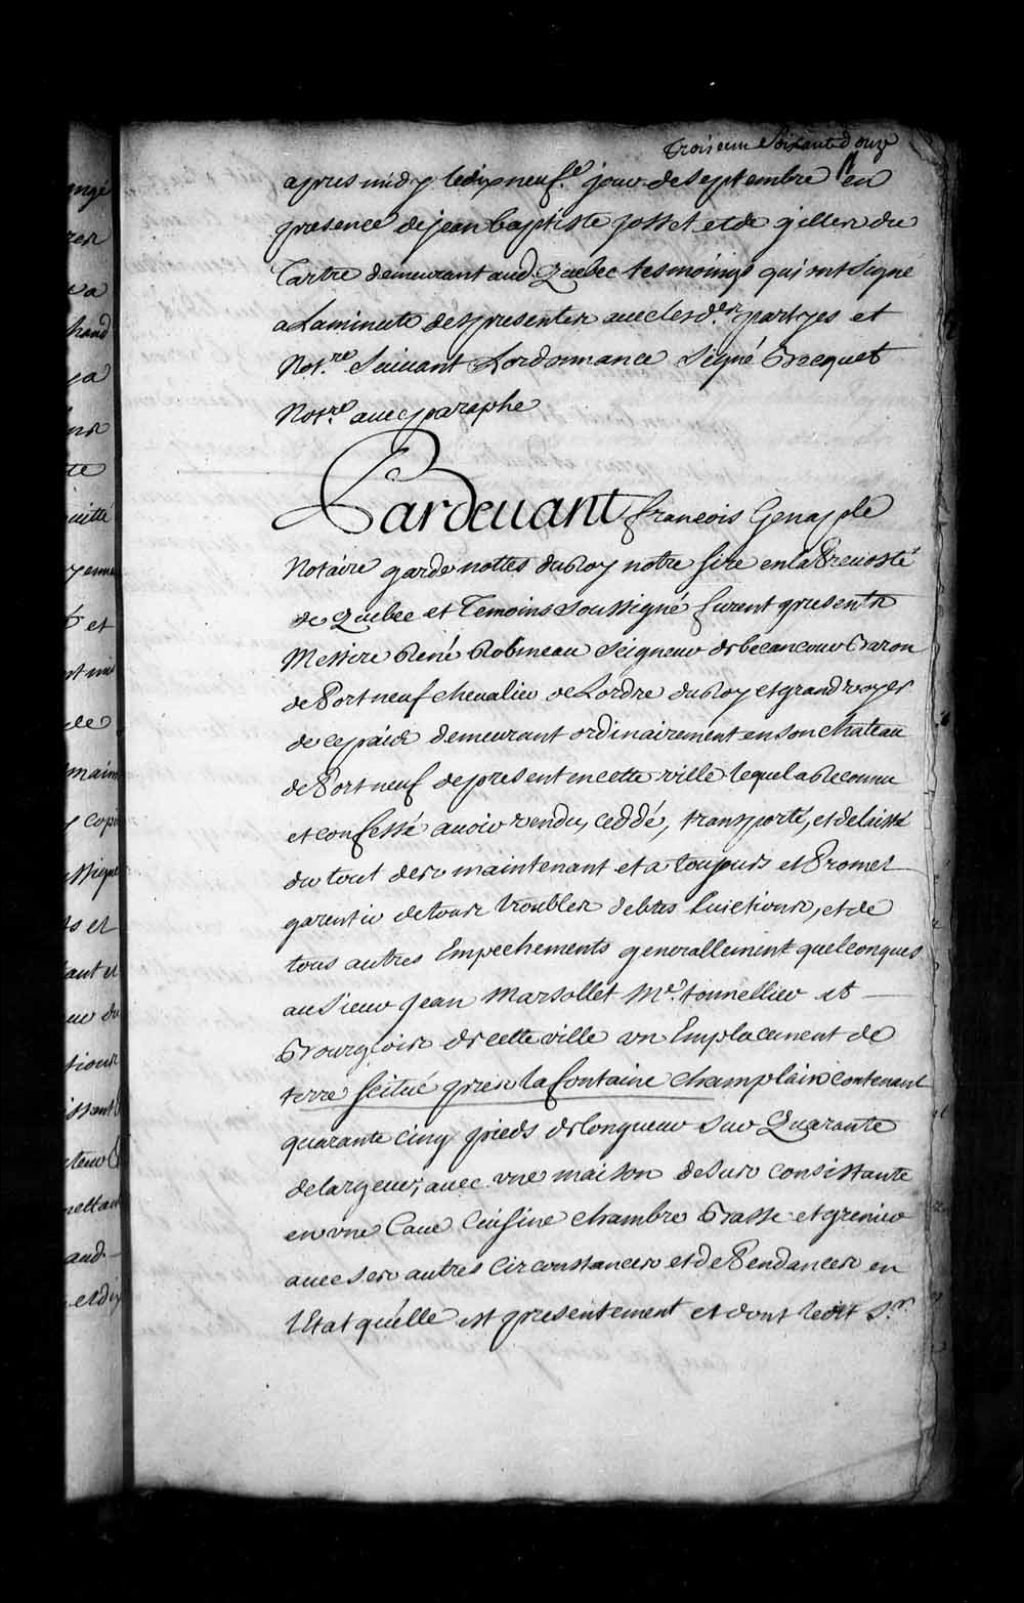 Trois cens Soixante d'ouze
apres midy le dixneufe. jour de Septembre en
presence de jean baptiste josset et de gilles du
Tartre demeurant aud. Quebec tesmoings qui ont signé
a La minutte des presentes auec lesd. partyes et
Not.re Suiuant Lordonnance Signé Becquet
Not.re auec paraphe
Pardeuant francois Genaple
Notaire garde nottes du Roy notre sire en la Preuosté
de Quebec et Temoins soussigné furent presents
Messire René Robineau Seigneur de becancour Baron
de Portneuf cheualier de Lordre du Roy et grand voyer
de ce païs demeurant ordinairement en son chateau
de Portneuf de present en cette ville lequel a Reconnu
et confessé auoir vendu, ceddé, transporté, et delaissé
du tout des maintenant et a toujours et Promet
garentir de tous troubles debtes Euictions, et de
tous autres Empechements generallement quelconques
au Sieur Jean Marsollet Me. tonnellier et
Bourgois de cette ville un Emplacement de
terre scitué pres la fontaine champlain contenant
quarante cinq pieds de longueur sur Quarante
de largeur, auec une maison dessus consistante
en une Caue Cuisine chambre Basse et grenier
auec ses autres Circonstances et dePendances en
l'Etat qu'elle est presentement et dont ledit Sr.